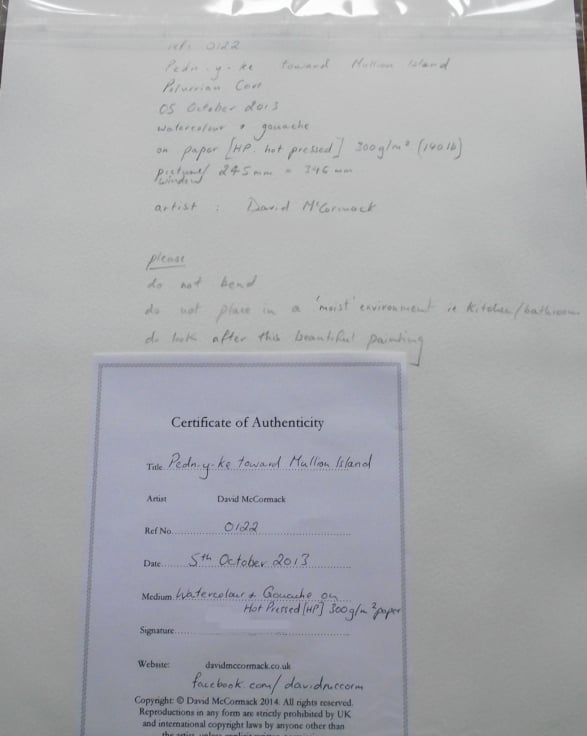 ref: 0122
Pedn-y-ke toward Mullion Island
Polurrian Cove
05 October 2013
watercolour + gouache
on paper [HP. hot pressed] 300g/m² (140lb)
picture/ window 245mm × 346mm
artist : David McCormack
please
do not bend
do not place in a 'moist' environment ie Kitchen/bathroom
do look after this beautiful painting
Certificate of Authenticity
Title Pedn-y-ke toward Mullion Island
Artist David McCormack
Ref No. 0122
Date 5th October 2013
Medium Watercolour + Gouache on
Hot Pressed [HP] 300g/m² paper
Signature
Website: davidmccormack.co.uk
facebook.com/davidmccorm
Copyright: © David McCormack 2014. All rights reserved.
Reproductions in any form are strictly prohibited by UK
and international copyright laws by anyone other than
the artist, unless